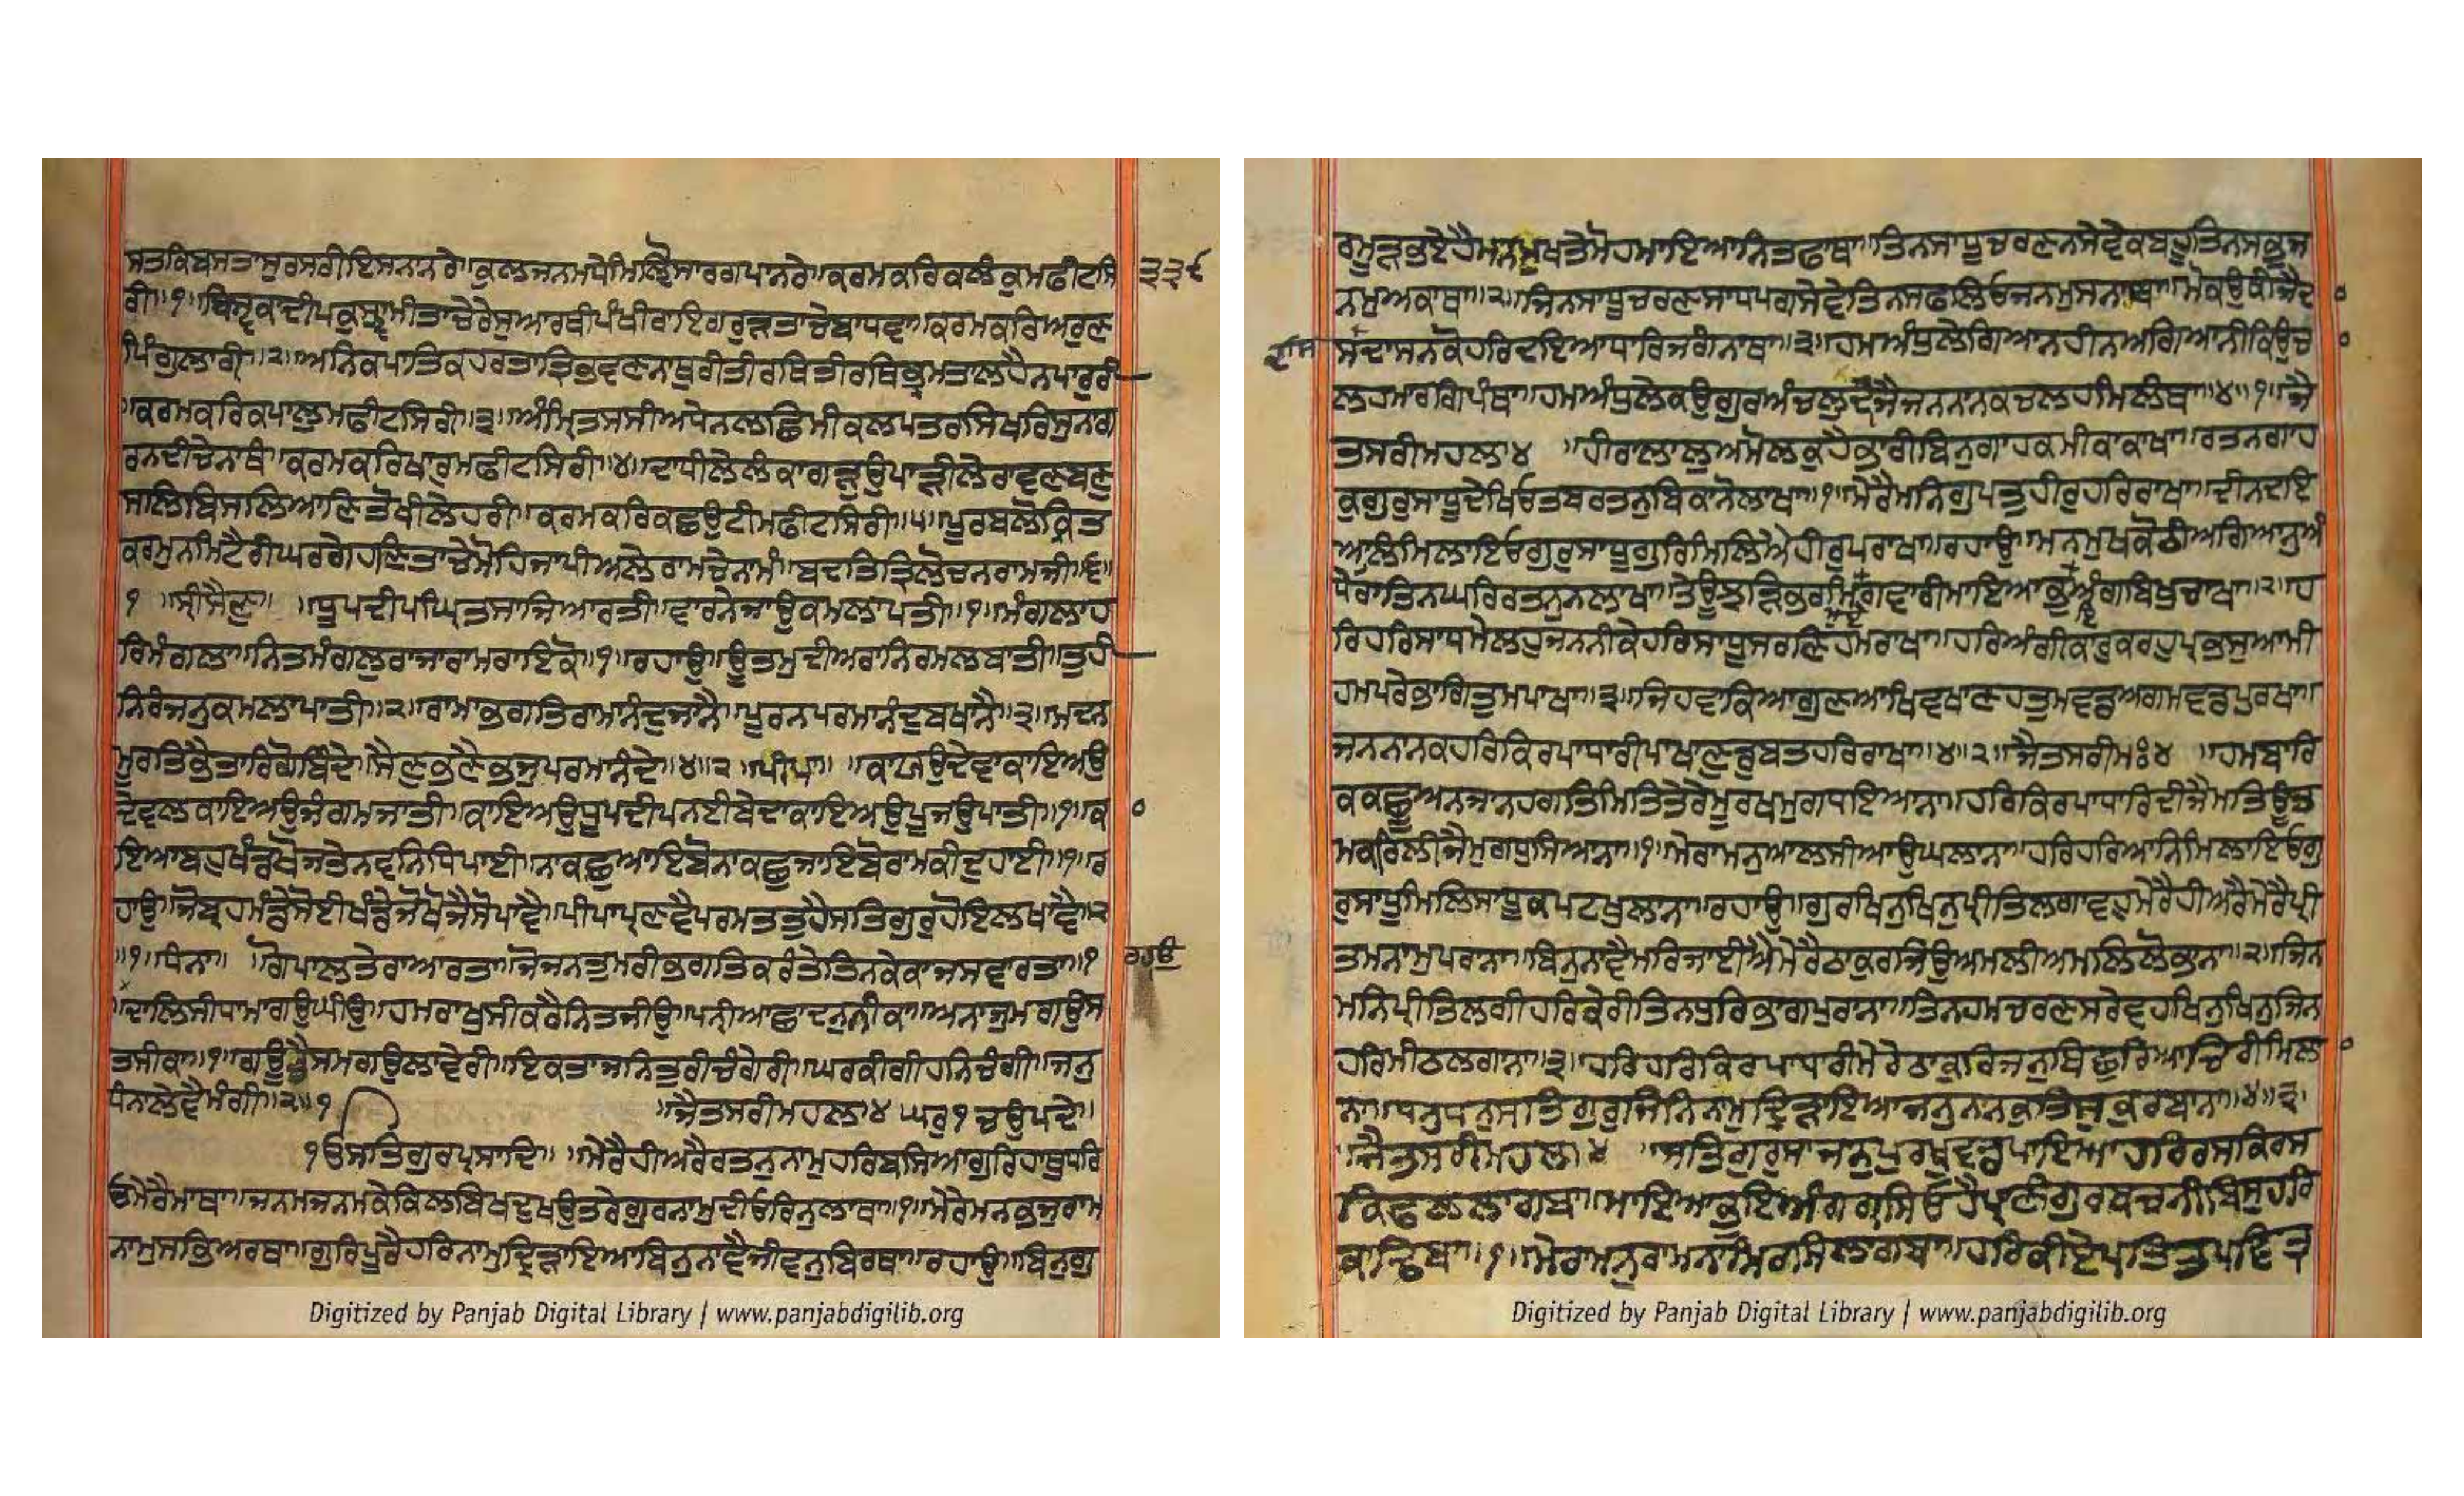 ਸਤਕਿਬਸਤਾਸੁਰਸਰੀਇਸਨਾਨਰੇ॥ਕੁਲਜਨਮਧੇਮਿਲੵੋਸਾਰਗਪਾਨਰੇ॥ਕਰਮਕਰਿਕਲੰਕੁਮਫੀਟਸਿ ੩੩੬
ਰੀ॥੧॥ਬਿਸ੍ਵਕਾਦੀਪਕੁਸ੍ਵਾਮੀਤਾਚੇਰੇਸੁਆਰਥੀਪੰਖੀਰਾਇਗਰੁੜਤਾਚੇਬਾਧਵਾ॥ਕਰਮਕਰਿਅਰੁਣ
ਪਿੰਗੁਲਾਰੀ॥੨॥ਅਨਿਕਪਾਤਿਕਹਰਤਾਤ੍ਰਿਭਵਣਨਾਥੁਰੀਤੀਰਥਿਤੀਰਥਿਭ੍ਰਮਤਾਲਹੈਨਪਾਰੁਰੀ
॥ਕਰਮਕਰਿਕਪਾਲੁਮਫੀਟਸਿਰੀ॥੩॥ਅੰਮ੍ਰਿਤਸਸੀਅਧੇਨਲਛਿਮੀਕਲਪਤਰਸਿਖਰਿਸੁਨਾਗ
ਰਨਦੀਚੇਨਾਥੰ॥ਕਰਮਕਰਿਖਾਰੁਮਫੀਟਸਿਰੀ॥੪॥ਦਾਧੀਲੇਲੰਕਾਗੜੁਉਪਾੜੀਲੇਰਾਵਣਬਣੁ
ਸਾਲਿਬਿਸਲਿਆਣਿਤੋਖੀਲੇਹਰੀ॥ਕਰਮਕਰਿਕਛਉਟੀਮਫੀਟਸਿਰੀ॥੫॥ਪੂਰਬਲੋਕ੍ਰਿਤ
ਕਰਮੁਨਮਿਟੈਰੀਘਰਗੇਹਣਿਤਾਚੇਮੋਹਿਜਾਪੀਅਲੇਰਾਮਚੇਨਾਮੰ॥ਬਦਤਿਤ੍ਰਿਲੋਚਨਰਾਮਜੀ॥੬॥
੧ ॥ਸ੍ਰੀਸੈਣੁ॥ ॥ਧੂਪਦੀਪਘ੍ਰਿਤਸਾਜਿਆਰਤੀ॥ਵਾਰਨੇਜਾਉਕਮਲਾਪਤੀ॥੧॥ਮੰਗਲਾਹ
ਰਿਮੰਗਲਾ॥ਨਿਤਮੰਗਲੁਰਾਜਾਰਾਮਰਾਇਕੋ॥੧॥ਰਹਾਉ॥ਊਤਮੁਦੀਅਰਾਨਿਰਮਲਬਾਤੀ॥ਤੁਹੀ
ਨਿਰੰਜਨੁਕਮਲਾਪਾਤੀ॥੨॥ਰਾਮਾਭਗਤਿਰਾਮਾਨੰਦੁਜਾਨੈ॥ਪੂਰਨਪਰਮਾਨੰਦੁਬਖਾਨੈ॥੩॥ਮਦਨ
ਮੂਰਤਿਭੈਤਾਰਿਗੋਬਿੰਦੇ॥ਸੈਣਭਣੈਭਜੁਪਰਮਾਨੰਦੇ॥੪॥੨॥ਪੀਪਾ॥ ॥ਕਾਯਉਦੇਵਾਕਾਇਅਉ
ਦੇਵਲਕਾਇਅਉਜੰਗਮਜਾਤੀ॥ਕਾਇਅਉਧੂਪਦੀਪਨਈਬੇਦਾਕਾਇਅਉਪੂਜਉਪਾਤੀ॥੧॥ਕ
ਇਆਬਹੁਖੰਡਖੋਜਤੇਨਵਨਿਧਿਪਾਈ॥ਨਾਕਛੁਆਇਬੋਨਾਕਛੁਜਾਇਬੋਰਾਮਕੀਦੁਹਾਈ॥੧॥ਰ
ਹਾਉ॥ਜੋਬ੍ਰਹਮੰਡੇਸੋਈਖੰਡੇਜੋਖੋਜੈਸੋਪਾਵੈ॥ਪੀਪਾਪ੍ਰਣਵੈਪਰਮਤਤੁਹੈਸਤਿਗੁਰੁਹੋਇਲਖਾਵੈ॥੨
॥੧॥ਧੰਨਾ॥ ॥ਗੋਪਾਲਤੇਰਾਆਰਤਾ॥ਜੋਜਨਤੁਮਰੀਭਗਤਿਕਰੰਤੇਤਿਨਕੇਕਾਜਸਵਾਰਤਾ॥੧ ਰਹਾਉ
॥ਦਾਲਿਸੀਧਾਮਾਗਉਘੀਉ॥ਹਮਰਾਖੁਸੀਕਰੈਨਿਤਜੀਉ॥ਪਨ੍ਹੀਆਛਾਦਨੁਨੀਕਾ॥ਅਨਾਜੁਮਗਉਸ
ਤਸੀਕਾ॥੧॥ਗਊਭੈਸਮਗਉਲਾਵੇਰੀ॥ਇਕਤਾਜਨਿਤੁਰੀਚੰਗੇਰੀ॥ਘਰਕੀਗੀਹਨਿਚੰਗੀ॥ਜਨੁ
ਧੰਨਾਲੇਵੈਮੰਗੀ॥੨॥੧ ॥ਜੈਤਸਰੀਮਹਲਾ੪ ਘਰੁ੧ ਚਉਪਦੇ॥
ੴਸਤਿਗੁਰਪ੍ਰਸਾਦਿ॥ ॥ਮੇਰੈਹੀਅਰੈਰਤਨੁਨਾਮੁਹਰਿਬਸਿਆਗੁਰਿਹਾਥੁਧਰਿ
ਓਮੇਰੈਮਾਥਾ॥ਜਨਮਜਨਮਕੇਕਿਲਬਿਖਦੁਖਉਤਰੇਗੁਰਨਾਮੁਦੀਓਰਿਨੁਲਾਥਾ॥੧॥ਮੇਰੇਮਨਭਜੁਰਾਮ
ਨਾਮੁਸਭਿਅਰਥਾ॥ਗੁਰਿਪੂਰੈਹਰਿਨਾਮੁਦ੍ਰਿੜਾਇਆਬਿਨੁਨਾਵੈਜੀਵਨੁਬਿਰਥਾ॥ਰਹਾਉ॥ਬਿਨੁਗੁ
Digitized by Panjab Digital Library | www.panjabdigilib.org
ਰਮੂੜਭਏਹੈਮਨਮੁਖਤੇਮੋਹਮਾਇਆਨਿਤਫਾਥਾ॥ਤਿਨਸਾਧੂਚਰਣਨਸੇਵੇਕਬਹੂਤਿਨਸਭੁਜ
ਨਮੁਅਕਾਥਾ॥੨॥ਜਿਨਸਾਧੂਚਰਣਸਾਧਪਗਸੇਵੇਤਿਨਸਫਲਿਓਜਨਮੁਸਨਾਥਾ॥ਮੋਕਉਕੀਜੈਦ
ਸੁਦਾਸਨਕੋਹਰਿਦਇਆਧਾਰਿਜਗੰਨਾਥਾ॥੩॥ਹਮਅੰਧੁਲੇਗਿਆਨਹੀਨਅਗਿਆਨੀਕਿਉਚ
ਲਹਮਾਰਗਿਪੰਥਾ॥ਹਮਅੰਧੁਲੇਕਉਗੁਰਅੰਚਲੁਦੀਜੈਜਨਨਾਨਕਚਲਹਮਿਲੰਥਾ॥੪॥੧॥ਜੈ
ਤਸਰੀਮਹਲਾ੪ ॥ਹੀਰਾਲਾਲੁਅਮੋਲਕੁਹੈਭਾਰੀਬਿਨੁਗਾਹਕਮੀਕਾਕਾਖਾ॥ਰਤਨਗਾਹ
ਕੁਗੁਰੁਸਾਧੂਦੇਖਿਓਤਬਰਤਨੁਬਿਕਾਨੋਲਾਖਾ॥੧॥ਮੇਰੈਮਨਿਗੁਪਤੁਹੀਰੁਹਰਿਰਾਖਾ॥ਦੀਨਦਇ
ਆਲਿਮਿਲਾਇਓਗੁਰੁਸਾਧੂਗੁਰਿਮਿਲਿਐਹੀਰੁਪਰਾਖਾ॥ਰਹਾਉ॥ਮਨਮੁਖਕੋਠੀਅਗਿਆਨੁਅੰ
ਧੇਰਾਤਿਨਘਰਿਰਤਨੁਨਲਾਖਾ॥ਤੇਊਝੜਿਭਰਮਿਗਵਾਰੀਮਾਇਆਭੁਅੰਗਬਿਖੁਚਾਖਾ॥੨॥ਹ
ਰਿਹਰਿਸਾਧਮੇਲਹੁਜਨਨੀਕੇਹਰਿਸਾਧੂਸਰਣਿਹਮਰਾਖਾ॥ਹਰਿਅੰਗੀਕਾਰੁਕਰਹੁਪ੍ਰਭਸੁਆਮੀ
ਹਮਪਰੇਭਾਗਿਤੁਮਪਾਖਾ॥੩॥ਜਿਹਵਾਕਿਆਗੁਣਆਖਿਵਖਾਣਹਤੁਮਵਡਅਗਮਵਡਪੁਰਖਾ॥
ਜਨਨਾਨਕਹਰਿਕਿਰਪਾਧਾਰੀਪਾਖਾਣੁਡੁਬਤਹਰਿਰਾਖਾ॥੪॥੨॥ਜੈਤਸਰੀਮਃ੪ ॥ਹਮਬਾਰਿ
ਕਕਛੂਅਨਜਾਨਹਗਤਿਮਿਤਿਤੇਰੇਮੂਰਖਮੁਗਧਇਆਨਾ॥ਹਰਿਕਿਰਪਾਧਾਰਿਦੀਜੈਮਤਿਊਤ
ਮਕਰਿਲੀਜੈਮੁਗਧੁਸਿਆਨਾ॥੧॥ਮੇਰਾਮਨੁਆਲਸੀਆਉਘਲਾਨਾ॥ਹਰਿਹਰਿਆਨਿਮਿਲਾਇਓਗੁ
ਰੁਸਾਧੂਮਿਲਿਸਾਧੂਕਪਟਖੁਲਾਨਾ॥ਰਹਾਉ॥ਗੁਰਖਿਨੁਖਿਨੁਪ੍ਰੀਤਿਲਗਾਵਹੁਮੇਰੈਹੀਅਰੈਮੇਰੈਪ੍ਰੀ
ਤਮਨਾਮੁਪਰਾਨਾ॥ਬਿਨੁਨਾਵੈਮਰਿਜਾਈਐਮੇਰੈਠਾਕੁਰਜਿਉਅਮਲੀਅਮਲਿਲੋਭਾਨਾ॥੨॥ਜਿਨ
ਮਨਿਪ੍ਰੀਤਿਲਗੀਹਰਿਕੇਰੀਤਿਨਧੁਰਿਭਾਗਪੁਰਾਨਾ॥ਤਿਨਹਮਚਰਣਸਰੇਵਹਖਿਨੁਖਿਨੁਜਿਨ
ਹਰਿਮੀਠਲਗਾਨਾ॥੩॥ਹਰਿਹਰਿਕਿਰਪਾਧਾਰੀਮੇਰੇਠਾਕੁਰਿਜਨੁਬਿਛੁਰਿਆਚਿਰੀਮਿਲਾ
ਨਾ॥ਧਨੁਧਨੁਸਤਿਗੁਰੁਜਿਨਿਨਾਮੁਦ੍ਰਿੜਾਇਆਜਨੁਨਾਨਕੁਤਿਸੁਕੁਰਬਾਨਾ॥੪॥੩॥
॥ਜੈਤਸਰੀਮਹਲਾ੪ ॥ਸਤਿਗੁਰੁਸਾਜਨੁਪੁਰਖੁਵਡਪਾਇਆਹਰਿਰਸਕਿਰਸ
ਕਿਫਲਲਾਗਿਬਾ॥ਮਾਇਆਭੁਇਅੰਗਗ੍ਰਸਿਓਹੈਪ੍ਰਾਣੀਗੁਰਬਚਨੀਬਿਸੁਹਰਿ
ਕਾਢਿਬਾ॥੧॥ਮੇਰਾਮਨੁਰਾਮਨਾਮਿਰਸਿਲਾਗਿਬਾ॥ਹਰਿਕੀਏਪਤਿਤਪਵਿਤ੍ਰ
Digitized by Panjab Digital Library | www.panjabdigilib.org